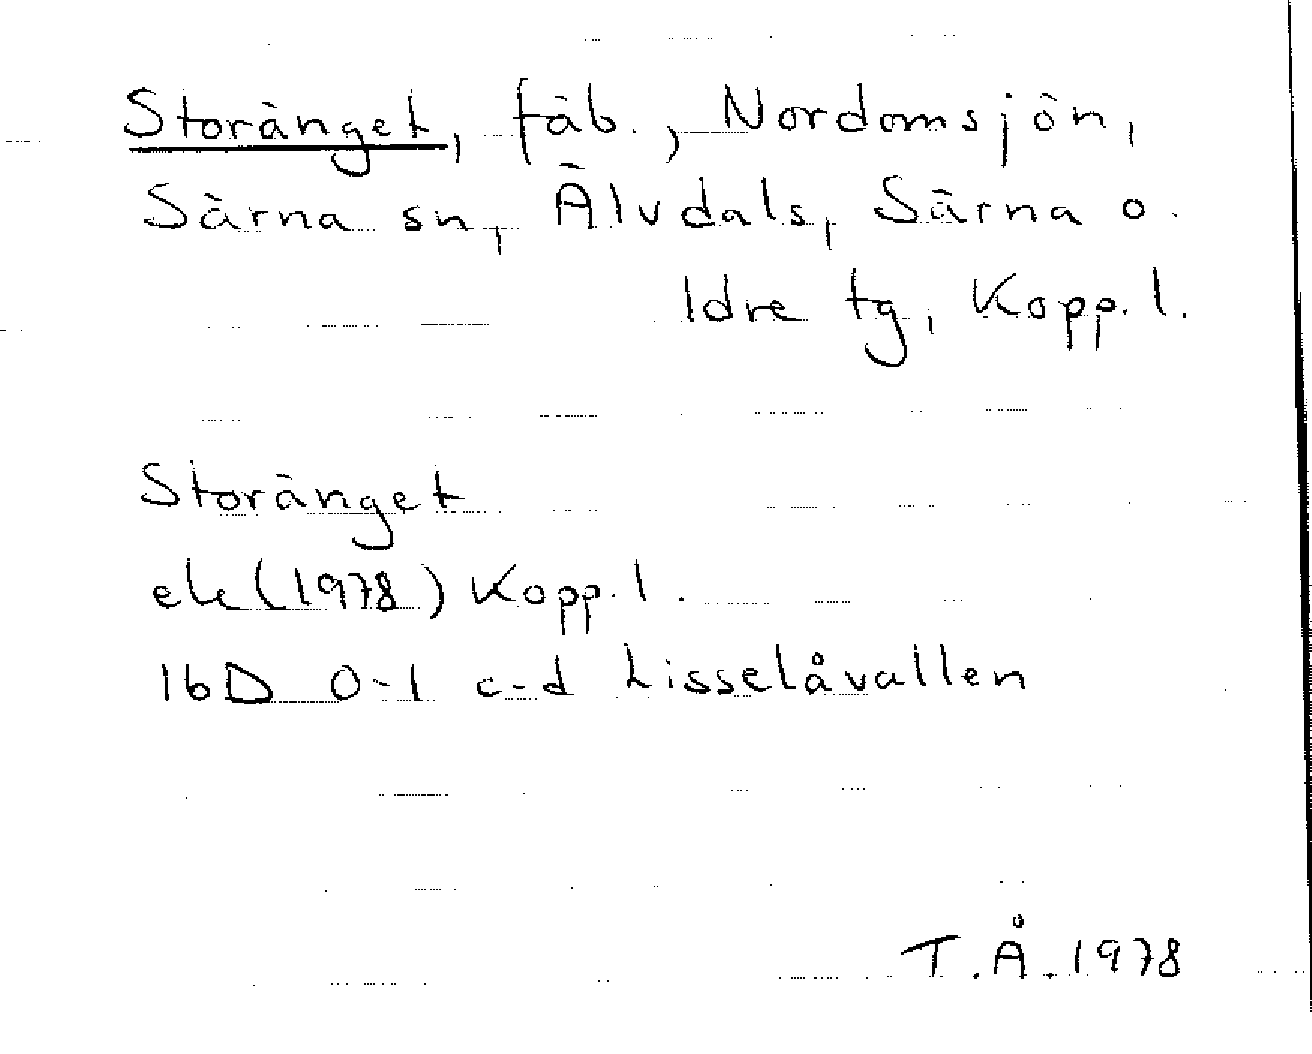 Storänget, fäb., Nordomsjön,
Särna sn, Älvdals, Särna o.
Idre tg, Kopp. l.
Storänget
ek (1978) Kopp. l.
16D 0-1 c-d Lisselåvallen
T.Å. 1978